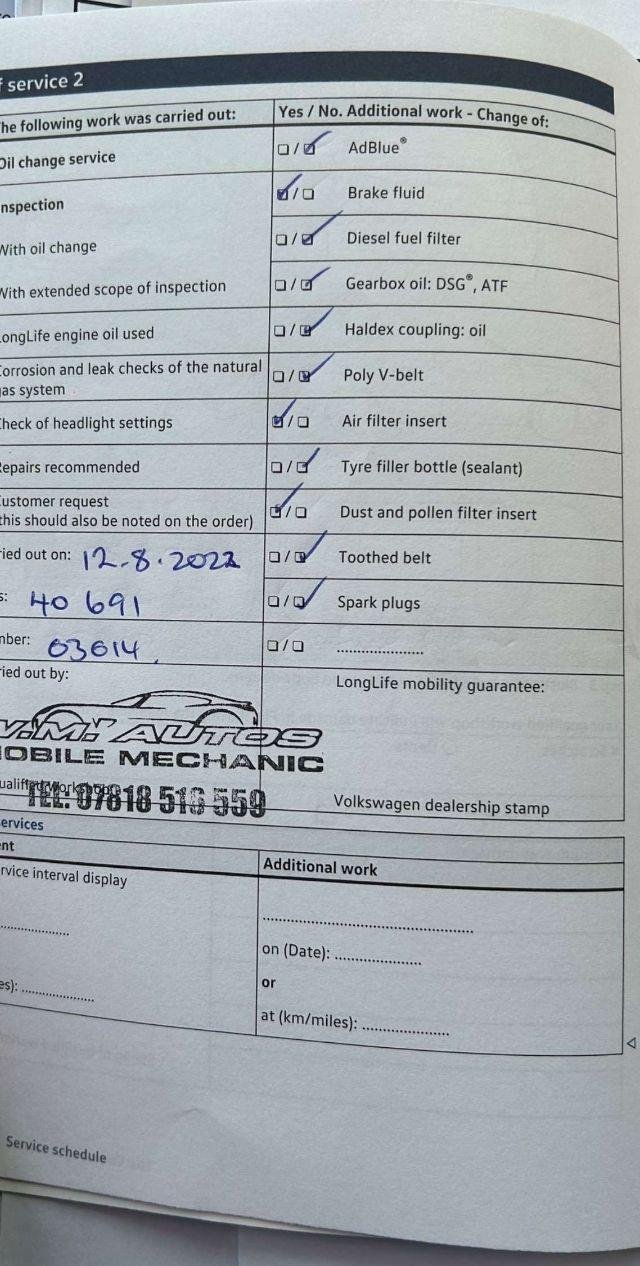 f service 2
he following work was carried out:
Yes / No. Additional work - Change of:
Oil change service
AdBlue®
nspection
Brake fluid
With oil change
Diesel fuel filter
With extended scope of inspection
Gearbox oil: DSG®, ATF
LongLife engine oil used
Haldex coupling: oil
Corrosion and leak checks of the natural
gas system
Poly V-belt
Check of headlight settings
Air filter insert
Repairs recommended
Tyre filler bottle (sealant)
Customer request
this should also be noted on the order)
Dust and pollen filter insert
ried out on: 12-8.2022
Toothed belt
s: 40 691
Spark plugs
mber: 03614
.....................
ried out by:
LongLife mobility guarantee:
V.M. AUTOS
MOBILE MECHANIC
TEL: 07818 516 559
Volkswagen dealership stamp
ervices
nt
Additional work
rvice interval display
on (Date): .....................
es): .....................
or
at (km/miles): .....................
Service schedule